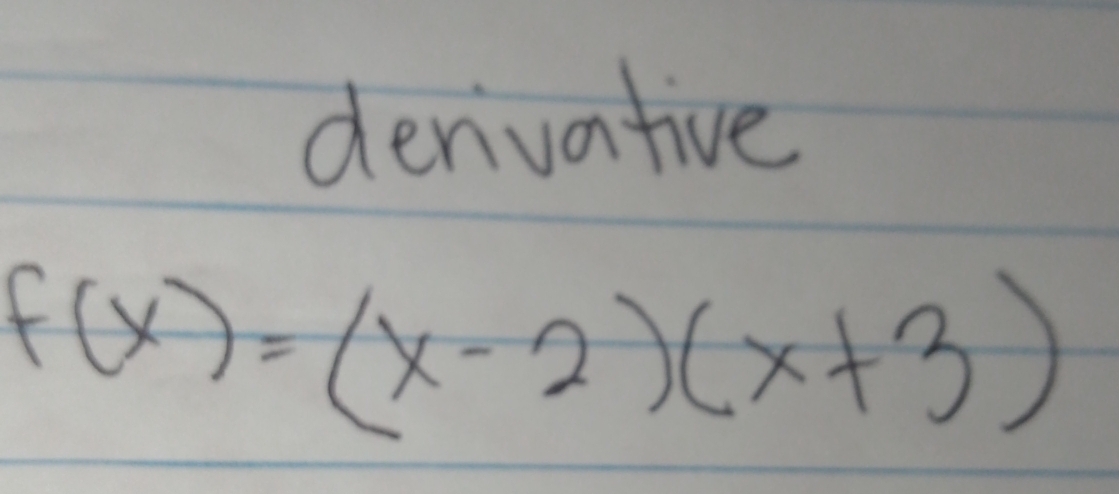 derivative
f(x)=(x-2)(x+3)